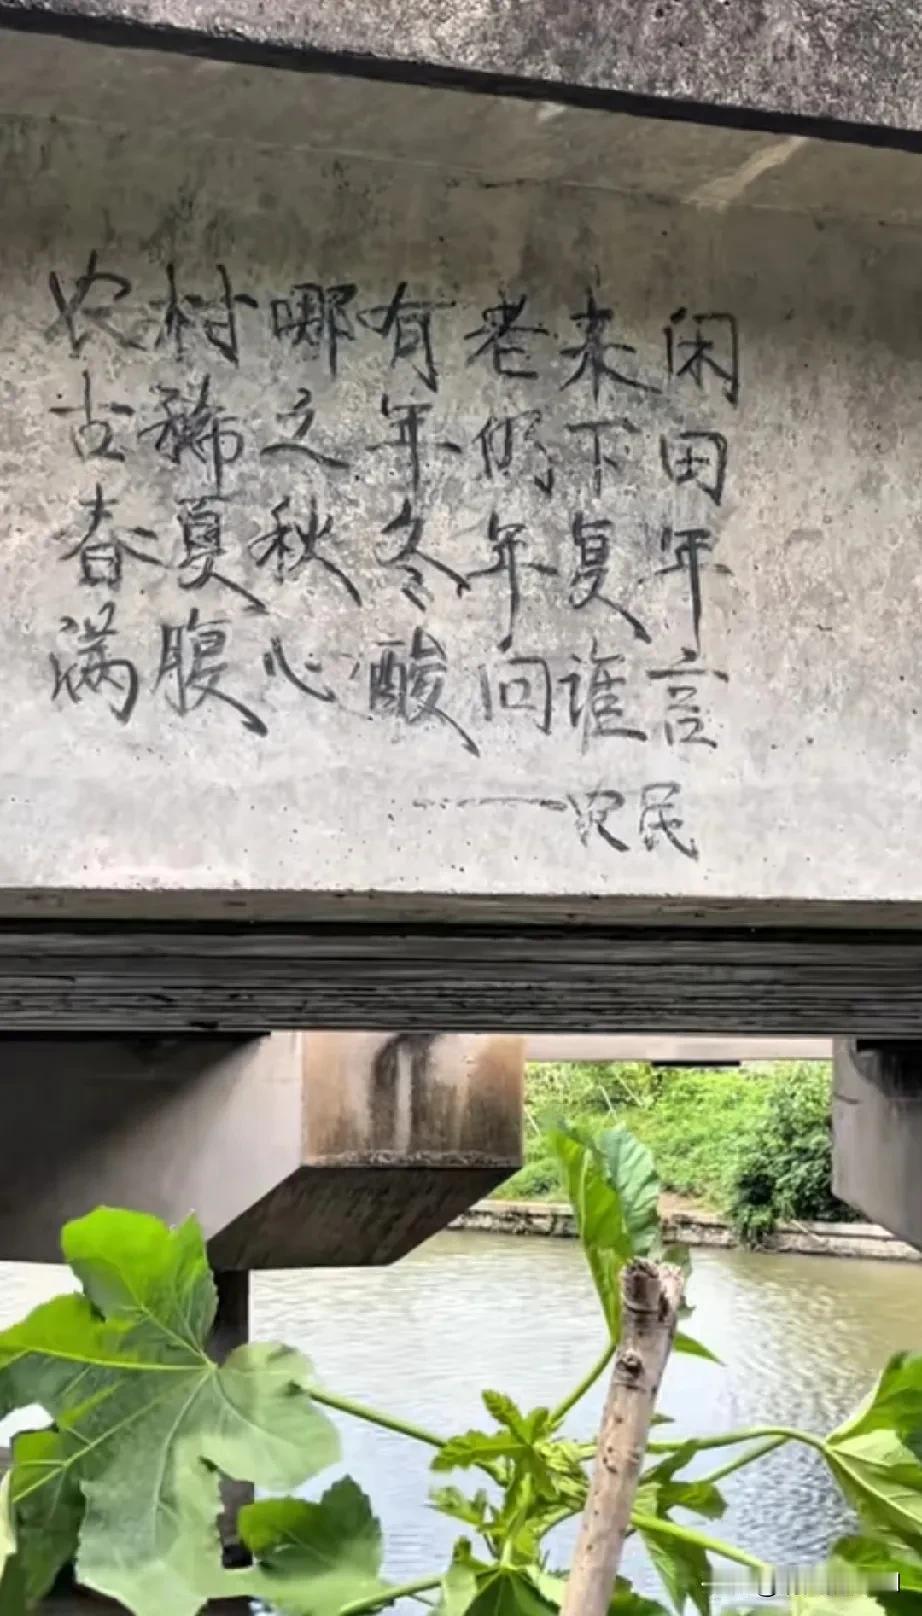 农村哪有老来闲
古稀之年仍下田
春夏秋冬年复年
满腹心酸问谁言
——农民